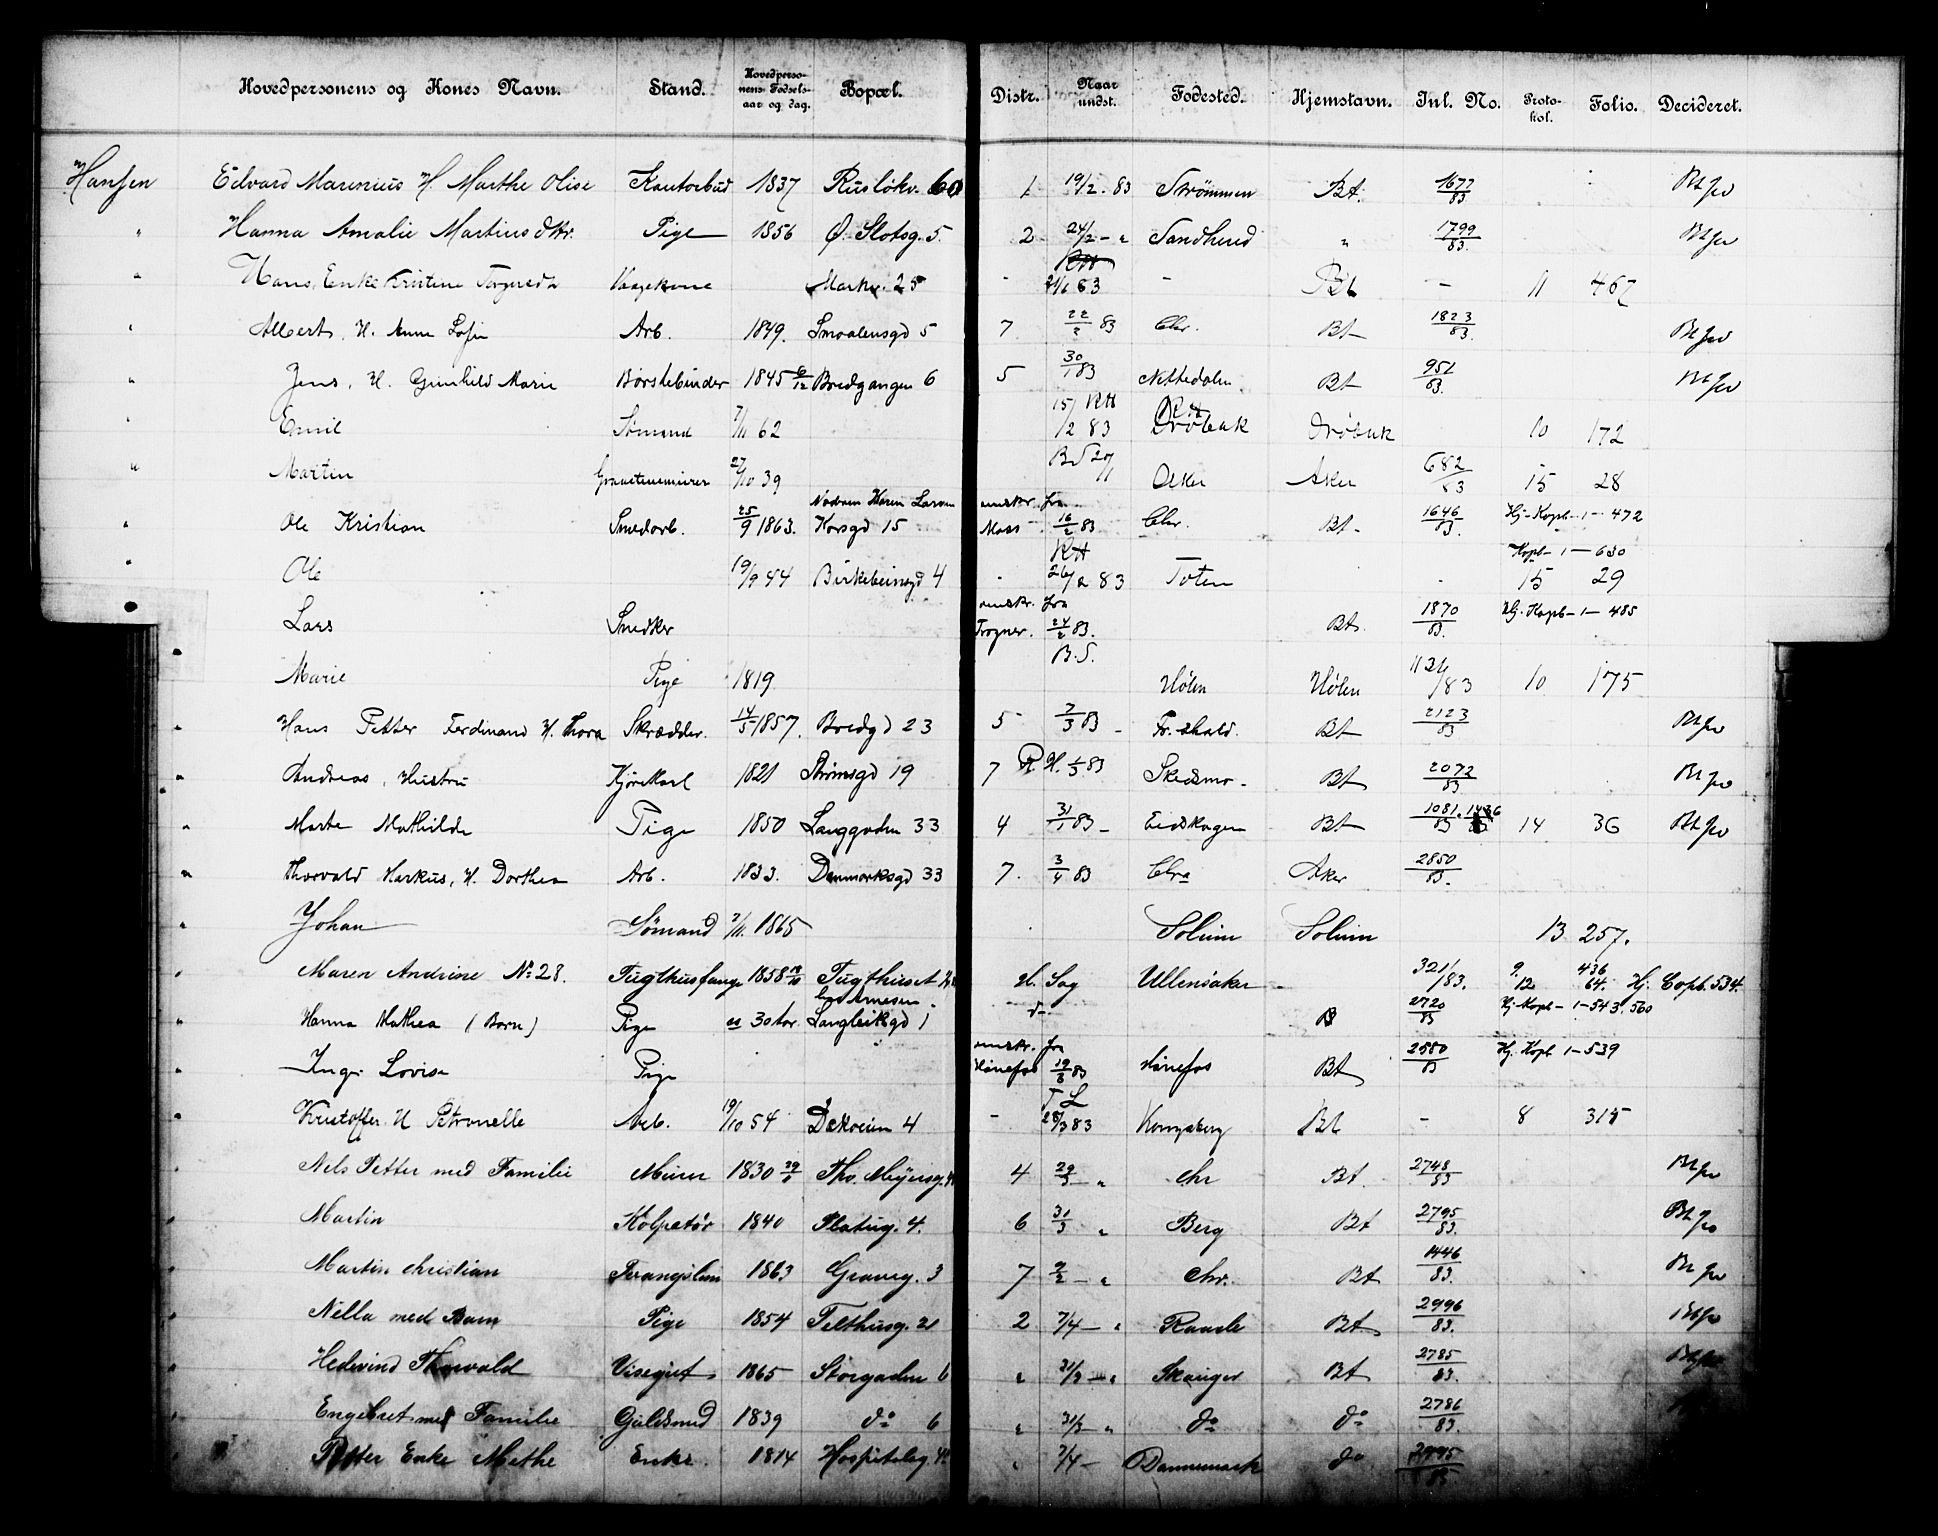 Hovedpersonens og Kones Navn. Stand. Hovedpersonens Fødselsaar og dag. Bopæl. Distr. Naar undst. Fødested. Hjemstavn. Inl. No. Protokol. Folio. Decideret.
Hansen Edvard Marenius H. Marthe Olise Kontorbud 1837 Rusløkv. 1 19/2 83 Strømmen Bt. 1672/83
" Hanna Amalie Martinsdtr. Pige 1856 Ø. Slotsg. 5. 2 24/2 - " Sandherred " 1799/83.
" Hans, Enke Kristine Vaagekone Markv. 25 - 83 - Bt - 11 467
" Albert, H. Anne Sofie Arb. 1849. Smaalensgd 5 7 22/2 83 Chr. Bt 1823/83.
" Jens, H. Gunhild Marie Børstebinder 1845 6/12 Bredgangen 6 5 30/1 83 Nittedalen Bt 951/83.
" Emil Sømand 7/11 62 15/2 RH 83 Drøbak Drøbak 10 172
" Martin 27/10 39 Asker Aker 682/83 15 28
" Ole Kristian Smedarb. 25/9 1863. Korsgd 15 omskr. fra Moss 16/2 83 Chr. Bt - 1646/83. Hj-Kopb-1-472
" Ole 19/9 44 Birkebeinsgd 4 - RH 26/2 83 Toten - Kopb-1-630 15 29
Lars Snedker omskr. fra Frogner. 24/2 83. Bt. 1870/83. Hj. Kopb-1-485
Marie Pige 1819 B.S. Hølen Hølen 1124/83 10 175
" Hans Petter Ferdinand H. Thora Skrædder. 14/5 1857. Bredgd 23 5 7/3 83 Fr.shald. Bt 2123/83
" Andreas, Hustru Kjørekarl 1821 Strømsgd 19 7 R.H. 1/3 83 Skedsmo - Bt 2072/83
" Marte Mathilde Pige 1850 Langgaden 33 4 31/1 83 - Eidskogen Bt 1081/83 14 36
" Thorvald Markus, H. Dorthea Arb. 1833. Danmarksgd 33 7. 3/4 83 Chra Aker 2850/83.
" Johan Sømand 7/11. 1865 Solum Solum 13 257.
" Maren Andrine No 28. Tugthusfange 1858 Tugthuset H. Sag Ullensaker - 321/83. 9. 436 12 64. Hj. Copb. 534.
" Hanna Mathea (Barn) Pige 30 aar. Langleiksgd 1 2720/83 Hj-Kopb-1-543. 560
" Inga Lovise Pige omskr. fra Hønefos 19/3 83 Hønefos Bt 2580/83 Hj. Kopb 1-539
" Kristoffer H Petronelle Arb. 19/10 54 4 - 28/3 83 Kongsberg Bt - 8 315
" Nels Petter med Familie Murer 1830 Tho. Meyersg. 4 29/3 " Chr Bt. 2748/83
" Martin Kolpetør 1840 Platug. 4. 6 31/3 " Berg Bt 2795/83.
" Martin Christian 1863 Graveg. 3 7 9/2 - " Chr. Bt 1446/83.
" Nella med Barn Pige 1854 Telthusg. 21 2 7/4 - " Raade Bt 2996/83.
" Hedevind Thorvald Visegut 1865 Storgaden 6 " 31/3 - " Skauger Bt 2785/83.
" Engebret med Familie Guldsmed 1839 do 6 " 31/3 - " do do 2786/83.
" Petter Enke Methe Enke. 1814 Hospitalsg. " 7/4 - Dannemark do